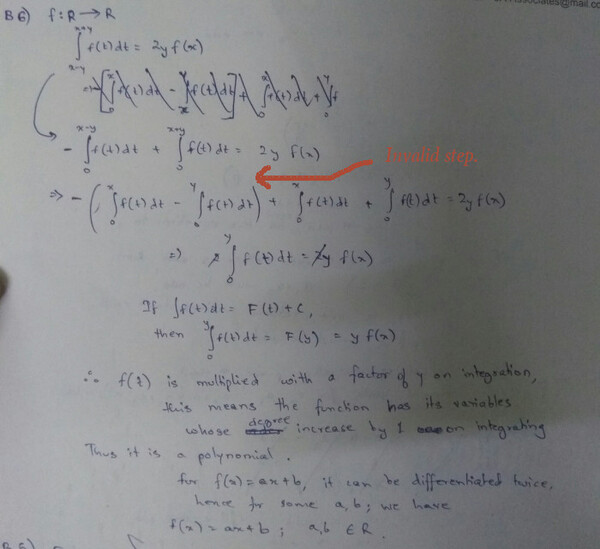 ssociates@gmail.co
B6) f: R → R
∫_{x-y}^{x+y} f(t) dt = 2y f(x)
- ∫_0^{x-y} f(t) dt + ∫_0^{x+y} f(t) dt = 2y f(x)
Invalid step.
⇒ - ( ∫_0^x f(t) dt - ∫_0^y f(t) dt ) + ∫_0^x f(t) dt + ∫_0^y f(t) dt = 2y f(x)
⇒ 2 ∫_0^y f(t) dt = 2y f(x)
If ∫f(t) dt = F(t) + C,
then ∫_0^y f(t) dt = F(y) = y f(x)
∴ f(t) is multiplied with a factor of y on integration,
this means the function has its variables
whose degree increase by 1 on integrating
Thus it is a polynomial.
for f(x) = ax+b, it can be differentiated twice,
hence for some a, b; we have
f(x) = ax+b ; a,b ∈ R.